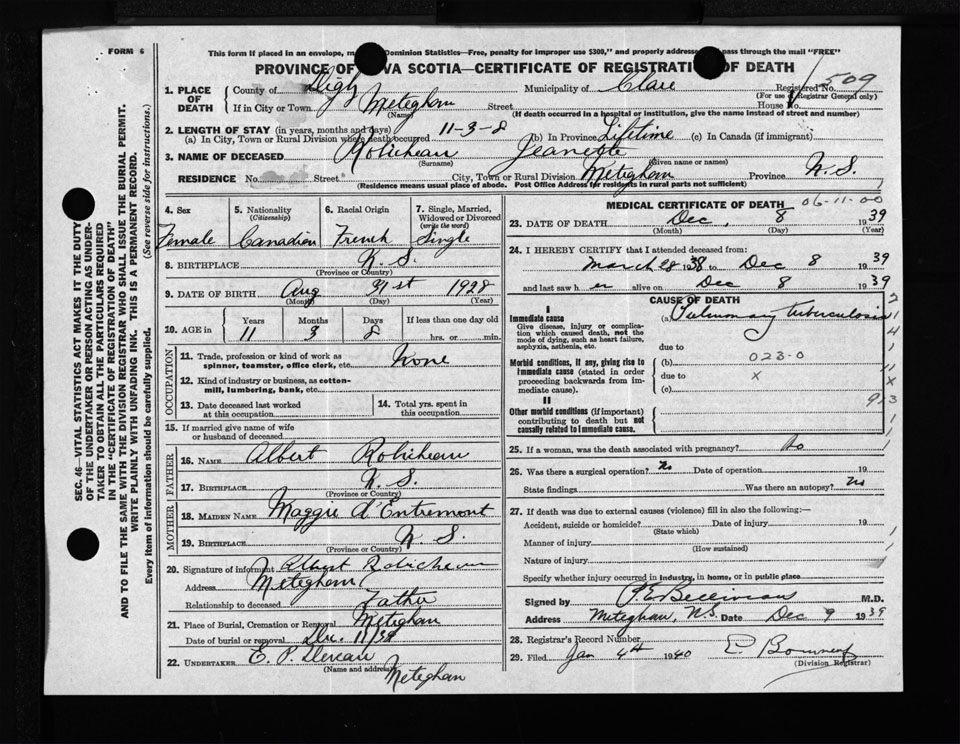 FORM 6
This form if placed in an envelope, m Dominion Statistics—Free, penalty for improper use $300," and properly addresse pass through the mail "FREE"
PROVINCE OF VA SCOTIA—CERTIFICATE OF REGISTRATI OF DEATH
509
1. PLACE OF DEATH
County of Digby Municipality of Clare Registered No.
(For use of Registrar General only)
If in City or Town Meteghan Street House N
(Name) (If death occurred in a hospital or institution, give the name instead of street and number)
2. LENGTH OF STAY (in years, months and days)
(a) In City, Town or Rural Division where death occurred 11-3-8 (b) In Province Lifetime (c) In Canada (if immigrant)
3. NAME OF DECEASED Robicheau Jeanette
(Surname) (Given name or names)
RESIDENCE No. Street City, Town or Rural Division Meteghan Province N.S.
(Residence means usual place of abode. Post Office Address for residents in rural parts not sufficient)
4. Sex Female
5. Nationality (Citizenship) Canadian
6. Racial Origin French
7. Single, Married, Widowed or Divorced (write the word) Single
8. BIRTHPLACE N.S.
(Province or Country)
9. DATE OF BIRTH Aug 31st 1928
(Month) (Day) (Year)
10. AGE in Years Months Days If less than one day old
11 3 8 hrs. or min.
OCCUPATION
11. Trade, profession or kind of work as spinner, teamster, office clerk, etc. None
12. Kind of industry or business, as cotton-mill, lumbering, bank, etc.
13. Date deceased last worked at this occupation
14. Total yrs. spent in this occupation
15. If married give name of wife or husband of deceased
FATHER
16. NAME Albert Robicheau
17. BIRTHPLACE N.S.
(Province or Country)
MOTHER
18. MAIDEN NAME Maggie d'Entremont
19. BIRTHPLACE N.S.
(Province or Country)
20. Signature of informant Albert Robicheau
Address Meteghan
Relationship to deceased Father
21. Place of Burial, Cremation or Removal Meteghan
Date of burial or removal Dec. 11/39
22. UNDERTAKER E. P. Deveau
(Name and address) Meteghan
MEDICAL CERTIFICATE OF DEATH 06-11-00
23. DATE OF DEATH Dec, 8 1939
(Month) (Day) (Year)
24. I HEREBY CERTIFY that I attended deceased from:
March 28 1938 to Dec 8 1939
and last saw h er alive on Dec 8 1939
CAUSE OF DEATH
I
Immediate cause
Give disease, injury or complication which caused death, not the mode of dying, such as heart failure, asphyxia, asthenia, etc.
(a) Pulmonary tuberculosis
due to
Morbid conditions, if any, giving rise to Immediate cause (stated in order proceeding backwards from immediate cause).
(b) 023-0
due to x
(c)
II
Other morbid conditions (if important) contributing to death but not causally related to immediate cause.
25. If a woman, was the death associated with pregnancy? No
26. Was there a surgical operation? No Date of operation 19
State findings Was there an autopsy? No
27. If death was due to external causes (violence) fill in also the following:—
Accident, suicide or homicide? Date of injury 19
(State which)
Manner of injury
(How sustained)
Nature of injury
Specify whether injury occurred in industry, in home, or in public place
Signed by M.D.
Address Meteghan, N.S. Date Dec 9 1939
28. Registrar's Record Number
29. Filed Jan 4th 1940
(Division Registrar)
SEC. 46—VITAL STATISTICS ACT MAKES IT THE DUTY
OF THE UNDERTAKER OR PERSON ACTING AS UNDER-
TAKER TO OBTAIN ALL THE PARTICULARS REQUIRED
IN THE "CERTIFICATE OF REGISTRATION OF DEATH"
AND TO FILE THE SAME WITH THE DIVISION REGISTRAR WHO SHALL ISSUE THE BURIAL PERMIT.
WRITE PLAINLY WITH UNFADING INK. THIS IS A PERMANENT RECORD.
Every item of information should be carefully supplied. (See reverse side for instructions.)